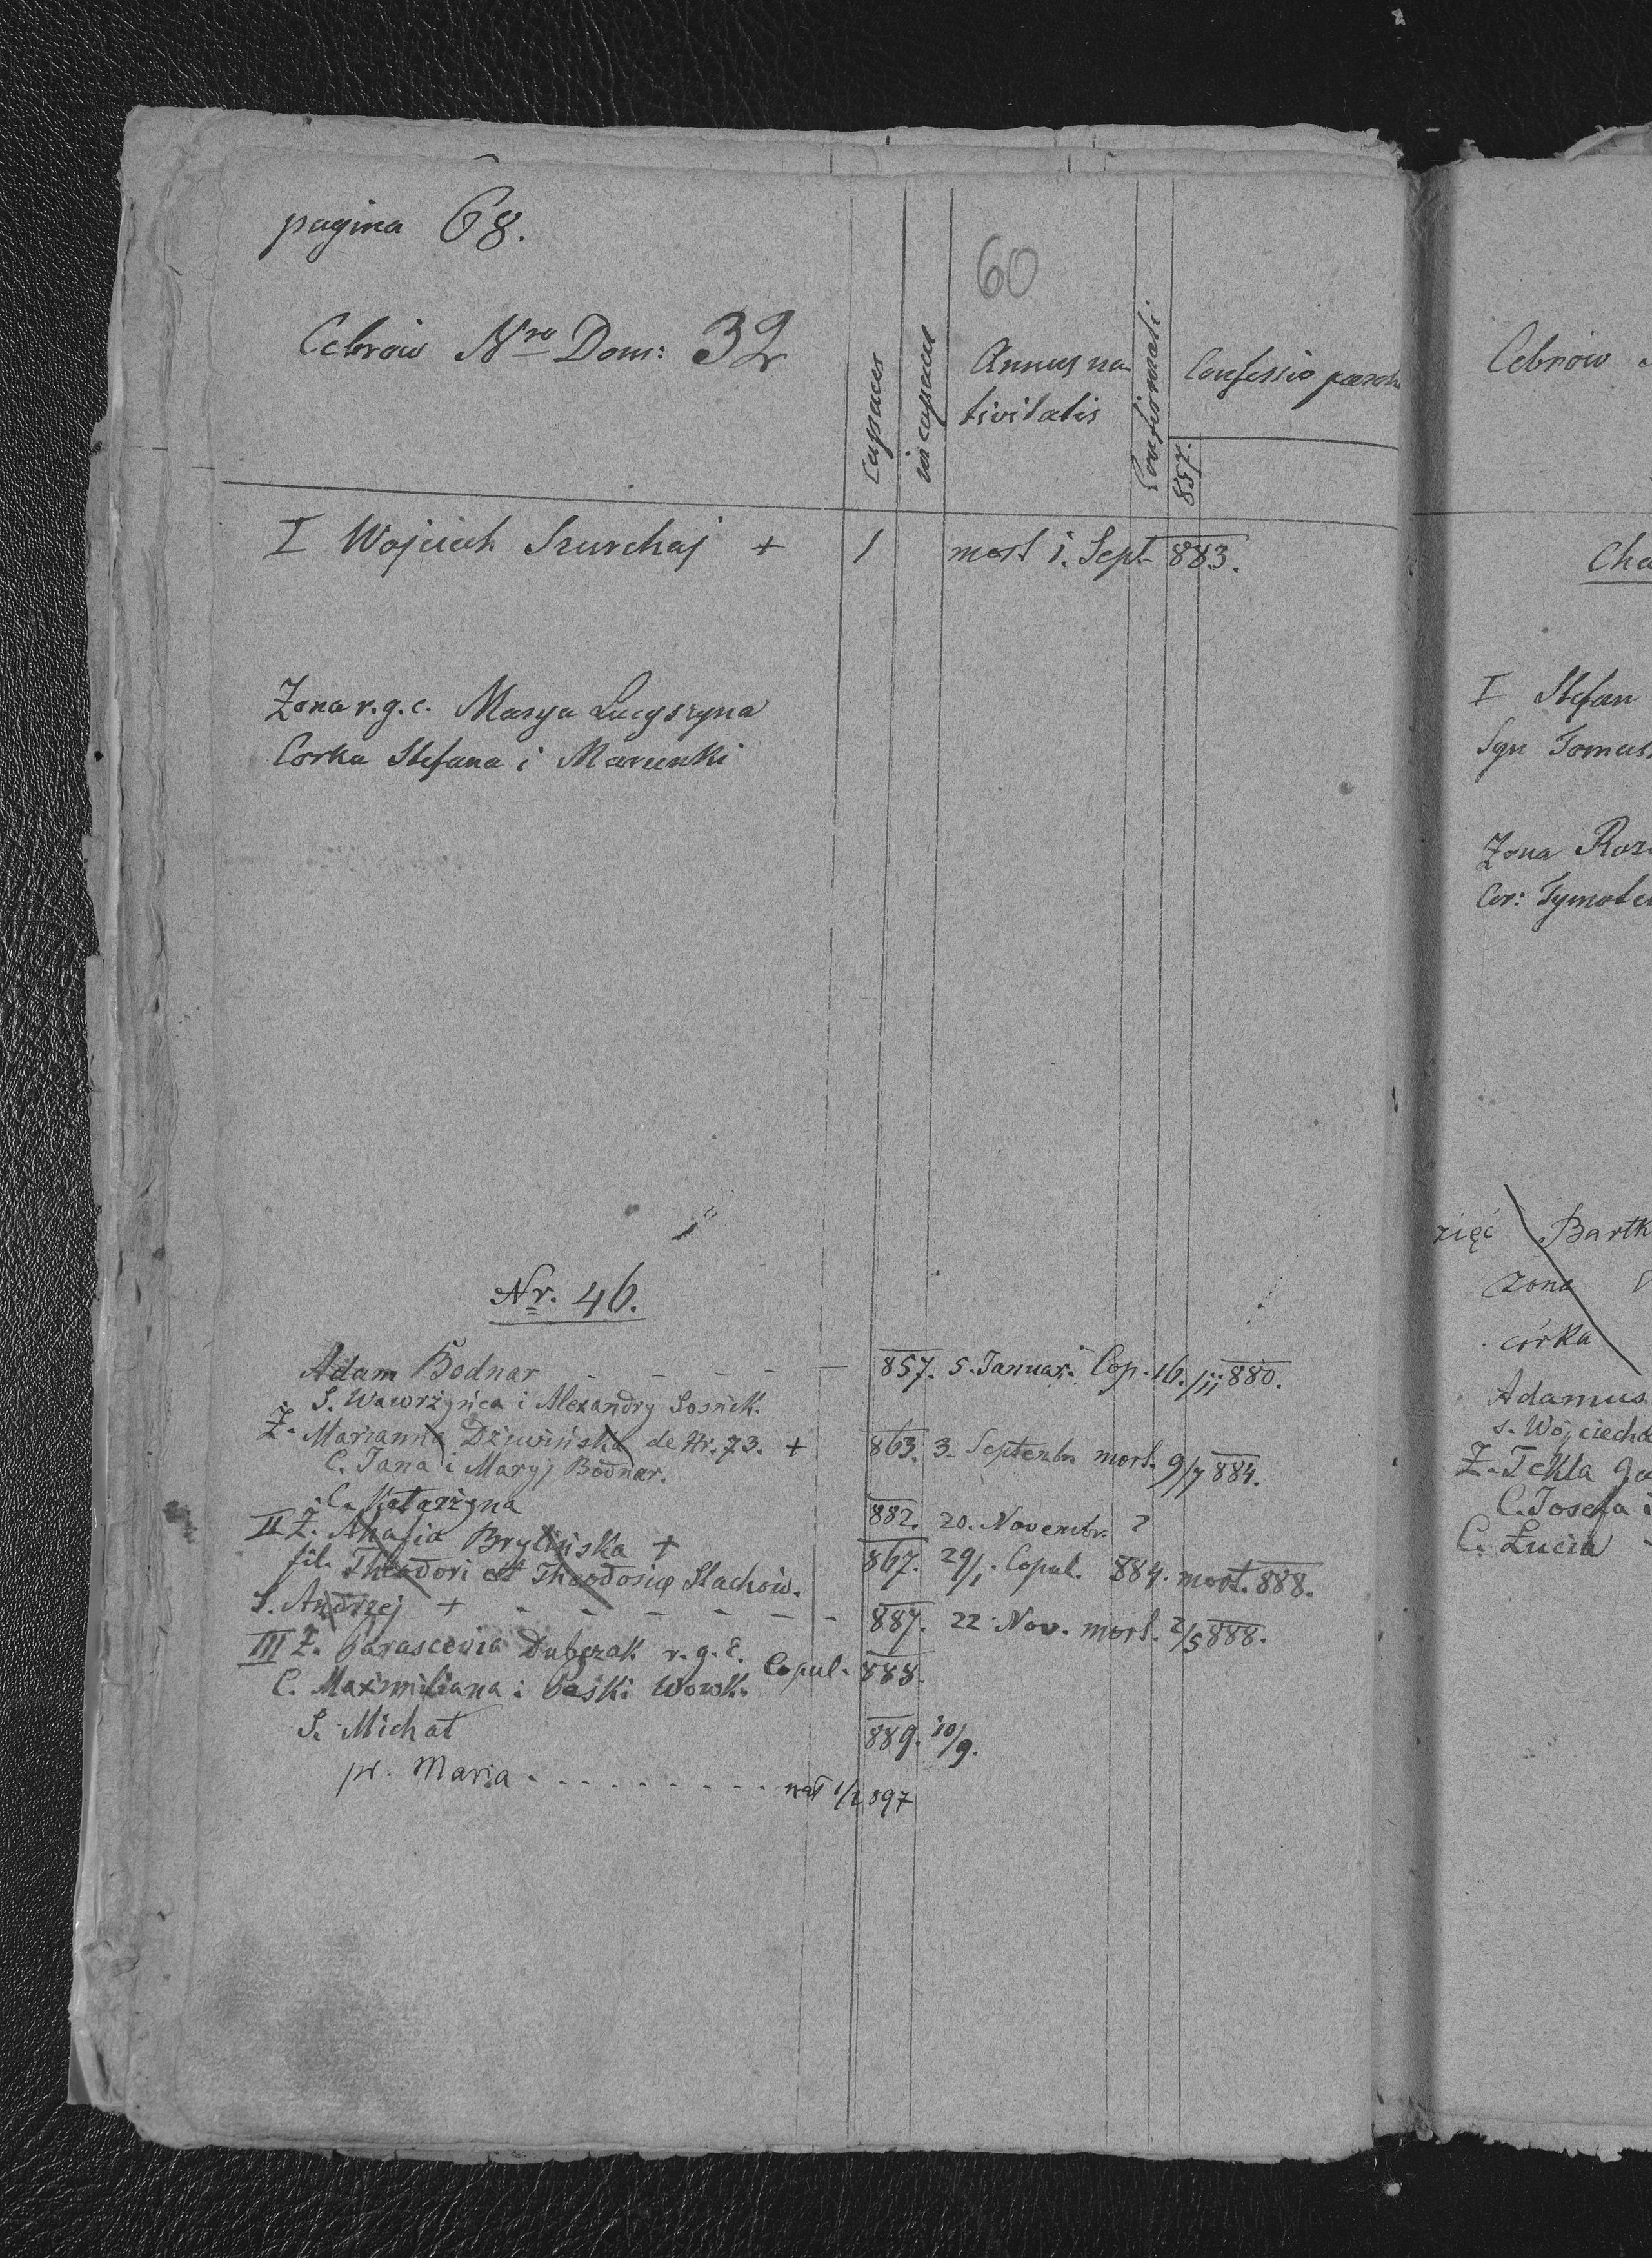 pagina 68.
60
Cebrów Nro Dom: 32
capaces
incapaces
Annus na-
tivitatis
Confirmati
Confessio pasch
857.
I Wojciech Szurchaj + 1 mort 1. Sept. 883.
Żona r.g.c. Marya Lucyszyna
Corka Stefana i Marunki
Nr. 46.
Adam Bodnar - - - - - 857. 5. Januar. Cop. 16./11 880.
S. Wawrzyńca i Alexandry Sosnick.
Ż. Marianna Dziwińska de Nr. 73. + 863. 3. Septembr. mort. 9/7 884.
C. Jana i Maryj Bodnar.
C. Katarzyna 882. 20. Novembr. ?
II Ż. Ahafia Brylińska + 867. 29/1. Copul. 884. mort. 888.
fil. Theodori et Theodosiæ Stachów.
S. Andrzej + - - - - - - 887. 22 Nov. mort. 2/5 888.
III Ż. Parascewia Dubczak r.g.c. Copul. 888.
C. Maximiliana i Paśki Wowk.
S. Michał 889. 10/9.
pr. Maria . . . . . . . . . nat 1/2 897
Cebrów
I Stefan
Syn Tomas
Żona Roz
Cor: Tymote
zięć Bartk
żona
córka
Adamus
s. Wojciecha
Ż. Tekla
C. Josefa i
C. Łucia